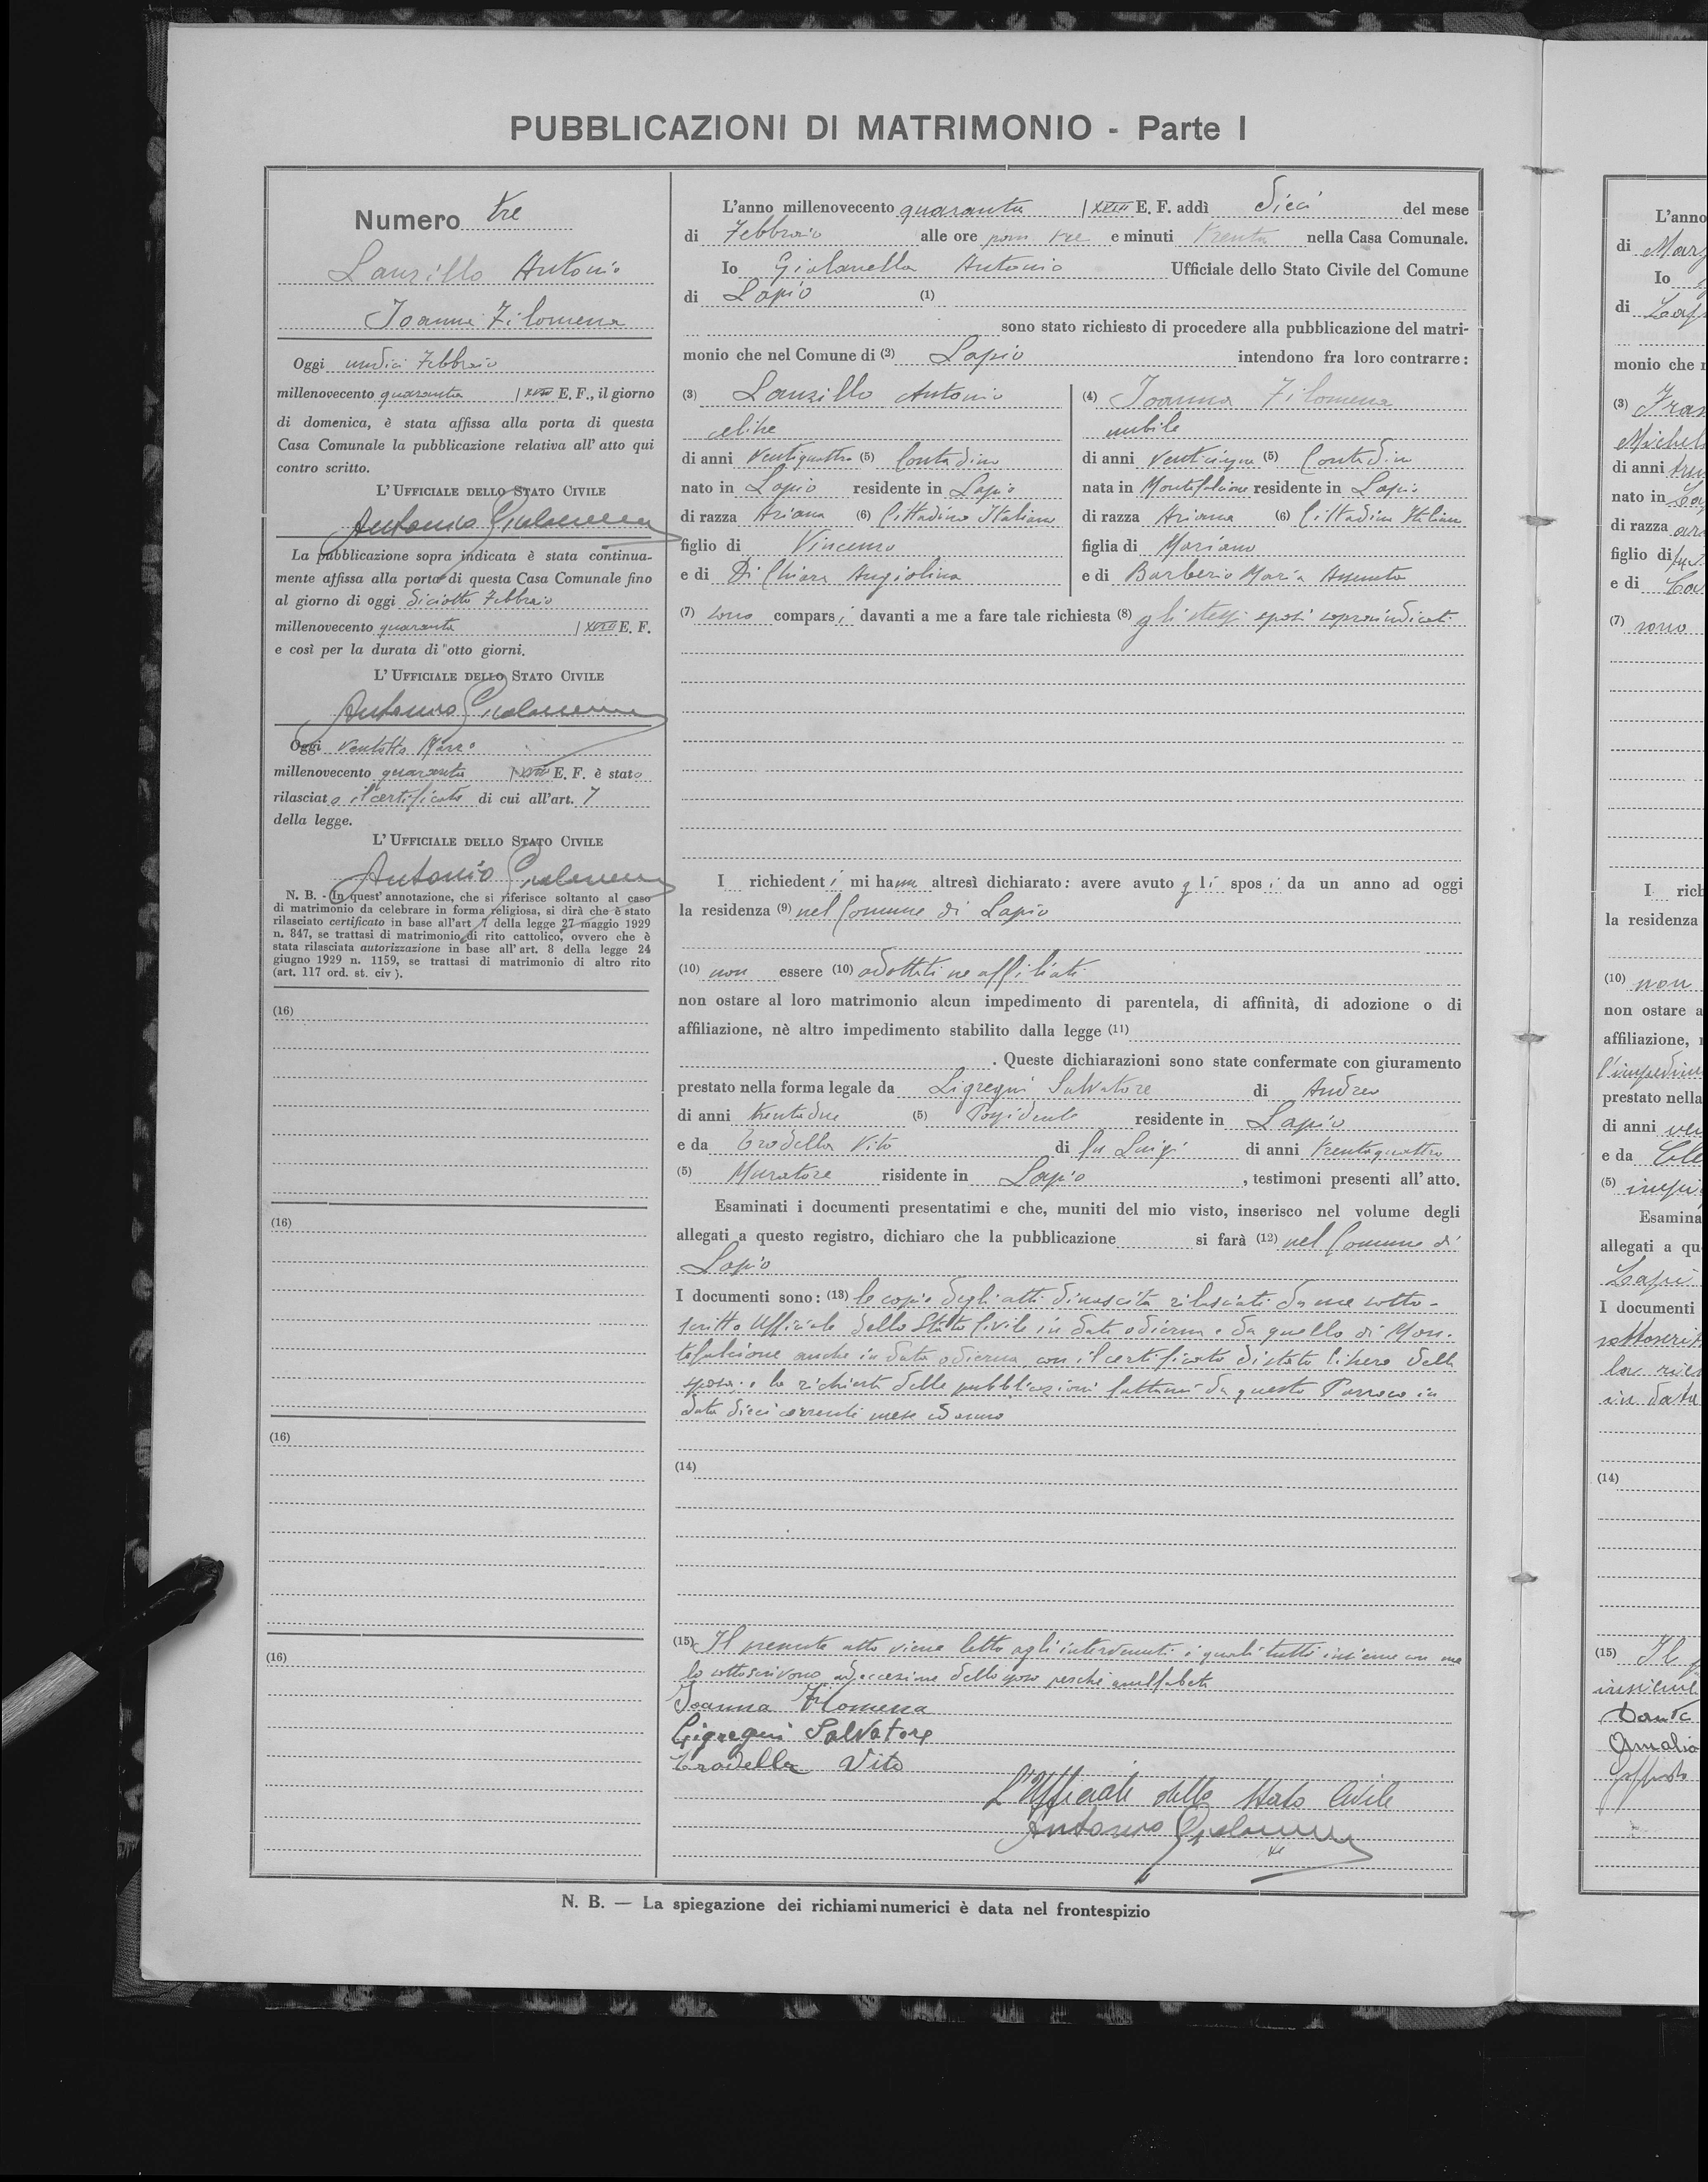 PUBBLICAZIONI DI MATRIMONIO - Parte I
Numero tre
Lanzillo Antonio
Ioanna Filomena
Oggi undici Febbraio
millenovecento quaranta / XVIII E. F., il giorno
di domenica, è stata affissa alla porta di questa
Casa Comunale la pubblicazione relativa all' atto qui
contro scritto.
L' UFFICIALE DELLO STATO CIVILE
Antonio
La pubblicazione sopra indicata è stata continua-
mente affissa alla porta di questa Casa Comunale fino
al giorno di oggi diciotto Febbraio
millenovecento quaranta / XVIII E. F.
e così per la durata di otto giorni.
L' UFFICIALE DELLO STATO CIVILE
Antonio
Oggi ventotto Marzo
millenovecento quaranta / XVIII E. F. è stato
rilasciato il certificato di cui all'art. 7
della legge.
L' UFFICIALE DELLO STATO CIVILE
Antonio
N. B. - In quest' annotazione, che si riferisce soltanto al caso
di matrimonio da celebrare in forma religiosa, si dirà che è stato
rilasciato certificato in base all'art 7 della legge 27 maggio 1929
n. 847, se trattasi di matrimonio di rito cattolico, ovvero che è
stata rilasciata autorizzazione in base all' art. 8 della legge 24
giugno 1929 n. 1159, se trattasi di matrimonio di altro rito
(art. 117 ord. st. civ ).
(16)
(16)
(16)
(16)
L'anno millenovecento quaranta / XVIII E. F. addì dieci del mese
di Febbraio alle ore pom tre e minuti trenta nella Casa Comunale.
Io Giolanella Antonio Ufficiale dello Stato Civile del Comune
di Lapio (1)
sono stato richiesto di procedere alla pubblicazione del matri-
monio che nel Comune di (2) Lapio intendono fra loro contrarre:
(3) Lanzillo Antonio
celibe
di anni ventiquattro (5) Contadino
nato in Lapio residente in Lapio
di razza Ariana (6) Cittadino Italiano
figlio di Vincenzo
e di Di Chiara Angiolina
(4) Ioanna Filomena
nubile
di anni venticinque (5) Contadina
nata in Montefalcione residente in Lapio
di razza Ariana (6) Cittadina Italiana
figlia di Mariano
e di Barberio Maria Assunta
(7) sono comparsi davanti a me a fare tale richiesta (8) gli stessi sposi sopraindicati
I richiedenti mi hanno altresì dichiarato: avere avuto gli sposi da un anno ad oggi
la residenza (9) nel Comune di Lapio
(10) non essere (10) adottati ne affiliati
non ostare al loro matrimonio alcun impedimento di parentela, di affinità, di adozione o di
affiliazione, nè altro impedimento stabilito dalla legge (11)
. Queste dichiarazioni sono state confermate con giuramento
prestato nella forma legale da Ligregni Salvatore di Andrea
di anni trentadue (5) Possidente residente in Lapio
e da Trodella Vito di fu Luigi di anni trentaquattro
(5) Muratore risidente in Lapio , testimoni presenti all' atto.
Esaminati i documenti presentatimi e che, muniti del mio visto, inserisco nel volume degli
allegati a questo registro, dichiaro che la pubblicazione si farà (12) nel Comune di
Lapio
I documenti sono: (13) le copie degli atti di nascita rilasciati da me sotto-
scritto Ufficiale dello Stato Civile in data odierna e da quello di Mon-
tefalcione anche in data odierna, con il certificato di stato libero della
sposa e la richiesta delle pubblicazioni fattami da questo Parroco in
data dieci corrente mese ed anno
(14)
(15) Il presente atto viene letto agli intervenuti i quali tutti insieme con me
lo sottoscrivono ad eccezione dello sposo perchè analfabeta
Ioanna Filomena
Ligregni Salvatore
Trodella Vito
L'Ufficiale dello Stato Civile
Antonio
N. B. — La spiegazione dei richiami numerici è data nel frontespizio
L'anno
di
Io
di
monio che
(3)
di anni
nato in
di razza
figlio di
e di
(7) sono
I rich
la residenza
(10) non
non ostare a
affiliazione,
prestato nella
di anni
e da
(5)
Esamina
allegati a qu
I documenti
in data
(14)
(15) Il
Amalia